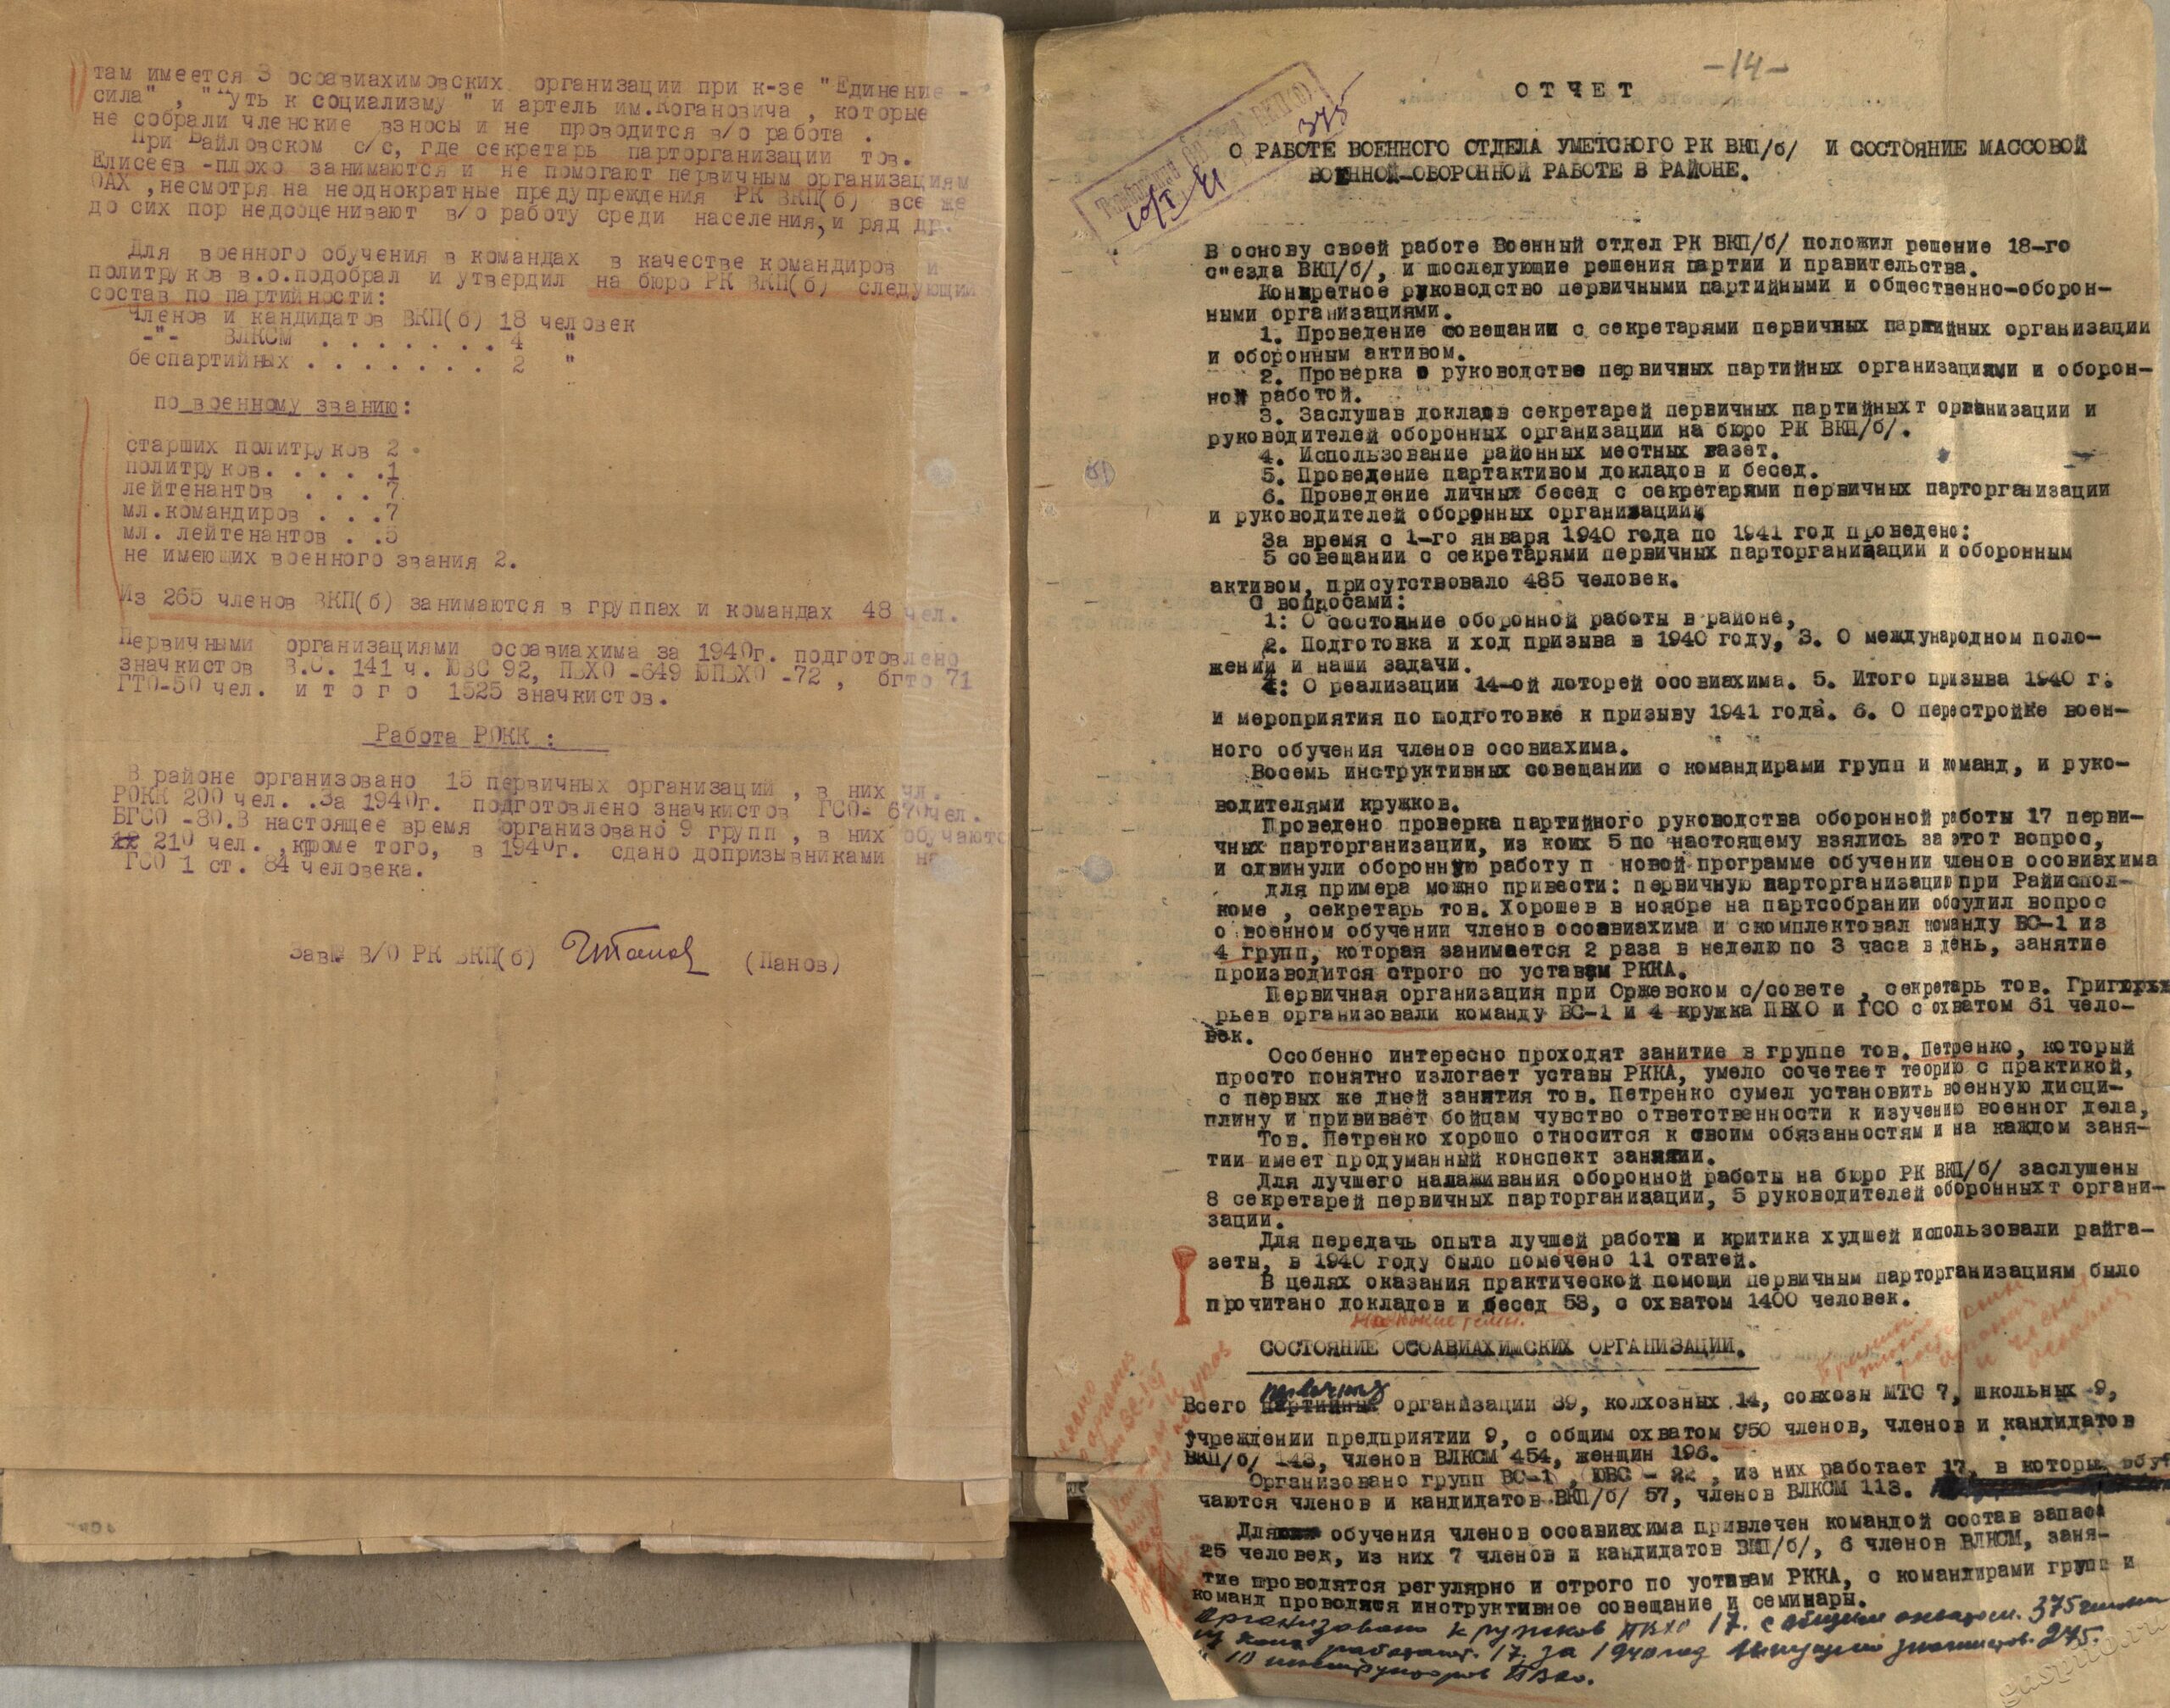 там имеется 3 осоавиахимовских организации при к-зе "Единение -
сила" , "Путь к социализму " и артель им.Когановича , которые
не собрали членские взносы и не проводится в/о работа .
При Райловском с/с, где секретарь парторганизации тов.
Елисеев -плохо занимаются и не помогают первичным организациям
ОАХ ,несмотря на неоднократные предупреждения РК ВКП(б) все же
до сих пор недооценивают в/о работу среди населения, и ряд др.
Для военного обучения в командах в качестве командиров и
политруков в.о.подобрал и утвердил на бюро РК ВКП(б) следующий
состав по партийности:
Членов и кандидатов ВКП(б) 18 человек
-"- ВЛКСМ . . . . . . . 4 "
беспартийных . . . . . . . 2 "
по военному званию:
старших политруков 2
политруков. . . . .1
лейтенантов . . . 7
мл.командиров . . .7
мл. лейтенантов . .5
не имеющих военного звания 2.
Из 265 членов ВКП(б) занимаются в группах и командах 48 чел.
Первичными организациями осоавиахима за 1940г. подготовлено
значкистов В.С. 141 ч. ЮВС 92, ПВХО -649 ЮПВХО -72 , бгто 71
ГТО-50 чел. и т о г о 1525 значкистов.
Работа РОКК :
В районе организовано 15 первичных организаций , в них чл.
РОКК 200 чел. .За 1940г. подготовлено значкистов ГСО- 670чел.
БГСО -80.В настоящее время организовано 9 групп , в них обучаютс
210 чел. ,кроме того, в 1940г. сдано допризывниками на
ГСО 1 ст. 84 человека.
Зав. В/О РК ВКП(б) (Панов)
-14-
О Т Ч Е Т
375
10/I 41
О РАБОТЕ ВОЕННОГО ОТДЕЛА УМЕТСКОГО РК ВКП/б/ И СОСТОЯНИЕ МАССОВОЙ
ВОЕННОЙ-ОБОРОННОЙ РАБОТЕ В РАЙОНЕ.
В основу своей работе Военный отдел РК ВКП/б/ положил решение 18-го
с"езда ВКП/б/, и последующие решения партии и правительства.
Конкретное руководство первичными партийными и общественно-оборон-
ными организациями.
1. Проведение совещании с секретарями первичных партийных организации
и оборонным активом.
2. Проверка о руководстве первичных партийных организациями и оборон-
ной работой.
3. Заслушав докладов секретарей первичных партийныхт организации и
руководителей оборонных организации на бюро РК ВКП/б/.
4. Использование районных местных газет.
5. Проведение партактивом докладов и бесед.
6. Проведение личных бесед с секретарями первичных парторганизации
и руководителей оборонных организации.
За время с 1-го января 1940 года по 1941 год проведено:
5 совещании с секретарями первичных парторганизации и оборонным
активом, присутствовало 485 человек.
С вопросами:
1: О состояние оборонной работы в районе,
2. Подготовка и ход призыва в 1940 году, 3. О международном поло-
жении и наши задачи.
4: О реализации 14-ой лоторей осовиахима. 5. Итого призыва 1940 г.
и мероприятия по подготовке к призыву 1941 года. 6. О перестройке воен-
ного обучения членов осовиахима.
Восемь инструктивных совещании с командирами групп и команд, и руко-
водителями кружков.
Проведено проверка партийного руководства оборонной работы 17 перви-
чных парторганизации, из коих 5 по настоящему взялись за этот вопрос,
и сдвинули оборонную работу п новой программе обучении членов осовиахима
для примера можно привести: первичную парторганизацию при Райиспол-
коме , секретарь тов. Хорошев в ноябре на партсобрании обсудил вопрос
о военном обучении членов осоавиахима и скомплектовал команду ВС-1 из
4 групп, которая занимается 2 раза в неделю по 3 часа в день, занятие
производится строго по уставам РККА.
Первичная организация при Оржевском с/совете , секретарь тов. Григорь
рьев организовали команду ВС-1 и 4 кружка ПВХО и ГСО с охватом 61 чело-
век.
Особенно интересно проходят занитие в группе тов. Петренко, который
просто понятно излогает уставы РККА, умело сочетает теорию с практикой,
с первых же дней занятия тов. Петренко сумел установить военную дисци-
плину и прививает бойцам чувство ответственности к изучению военног дела,
Тов. Петренко хорошо относится к своим обязанностям и на каждом заня-
тии имеет продуманный конспект занятии.
Для лучшего налаживания оборонной работы на бюро РК ВКП/б/ заслушены
8 секретарей первичных парторганизации, 5 руководителей оборонныхт органи-
зации.
Для передачь опыта лучшей работы и критика худшей использовали райга-
зеты, в 1940 году было помечено 11 статей.
В целях оказания практической помощи первичным парторганизациям было
прочитано докладов и бесед 53, с охватом 1400 человек.
На какие темы.
СОСТОЯНИЕ ОСОАВИАХИМСКИХ ОРГАНИЗАЦИИ.
первичных
Всего партийных организации 39, колхозных 14, совхозы МТС 7, школьных 9,
учреждении предприятии 9, с общим охватом 950 членов, членов и кандидатов
ВКП/б/ 143, членов ВЛКСМ 454, женщин 196.
Организовано групп ВС-1 , ЮВС - 22 , из них работает 17, в которых обу
чаются членов и кандидатов ВКП/б/ 57, членов ВЛКСМ 113.
Для обучения членов осоавиахима привлечен командой состав запаса
25 человек, из них 7 членов и кандидатов ВКП/б/, 6 членов ВЛКСМ, заня-
тие проводятся регулярно и строго по уставам РККА, с командирами групп и
команд проводятся инструктивное совещание и семинары.
Организовано кружков ПВХО 17. с общим охватом. 375 человек
из них работают. 17. За 1940 год выпущено значкистов. 245.
и 10 инструкторов ПВХО.
gaspito.ru